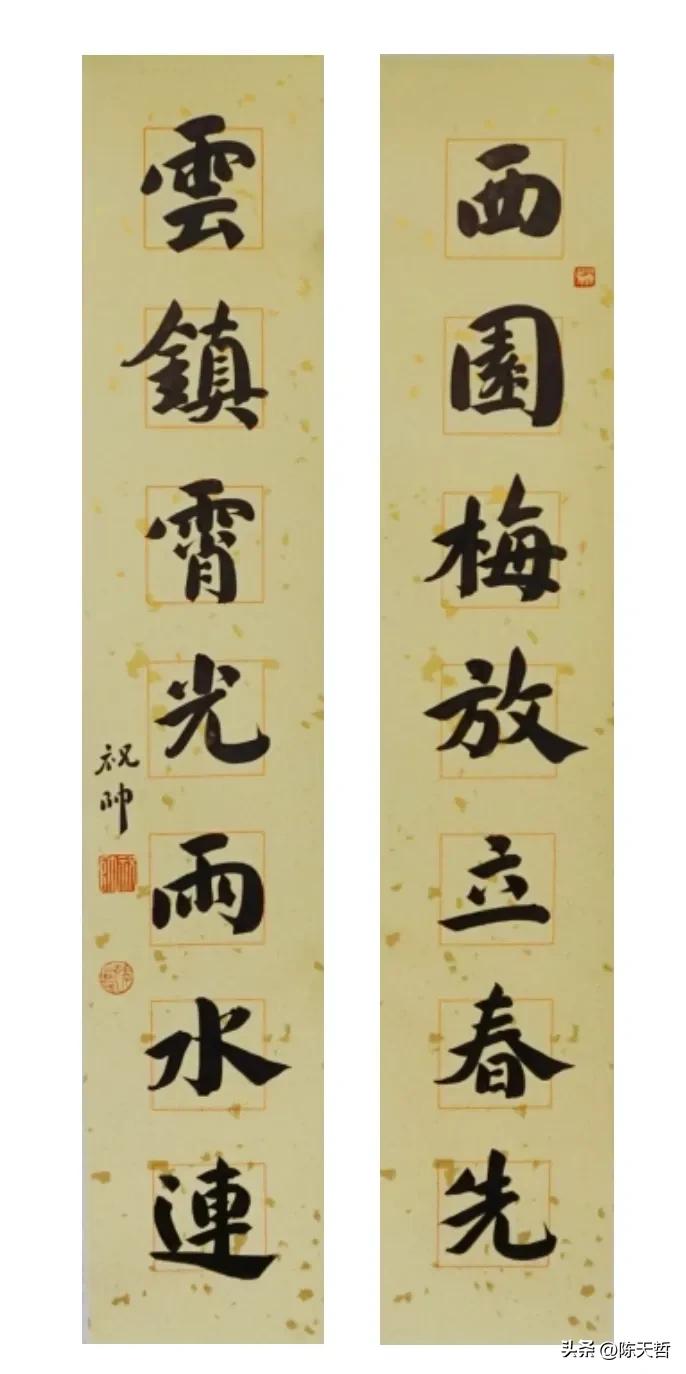 西園梅放立春先
雲鎮霄光雨水連
祝帥
头条 @陈天哲